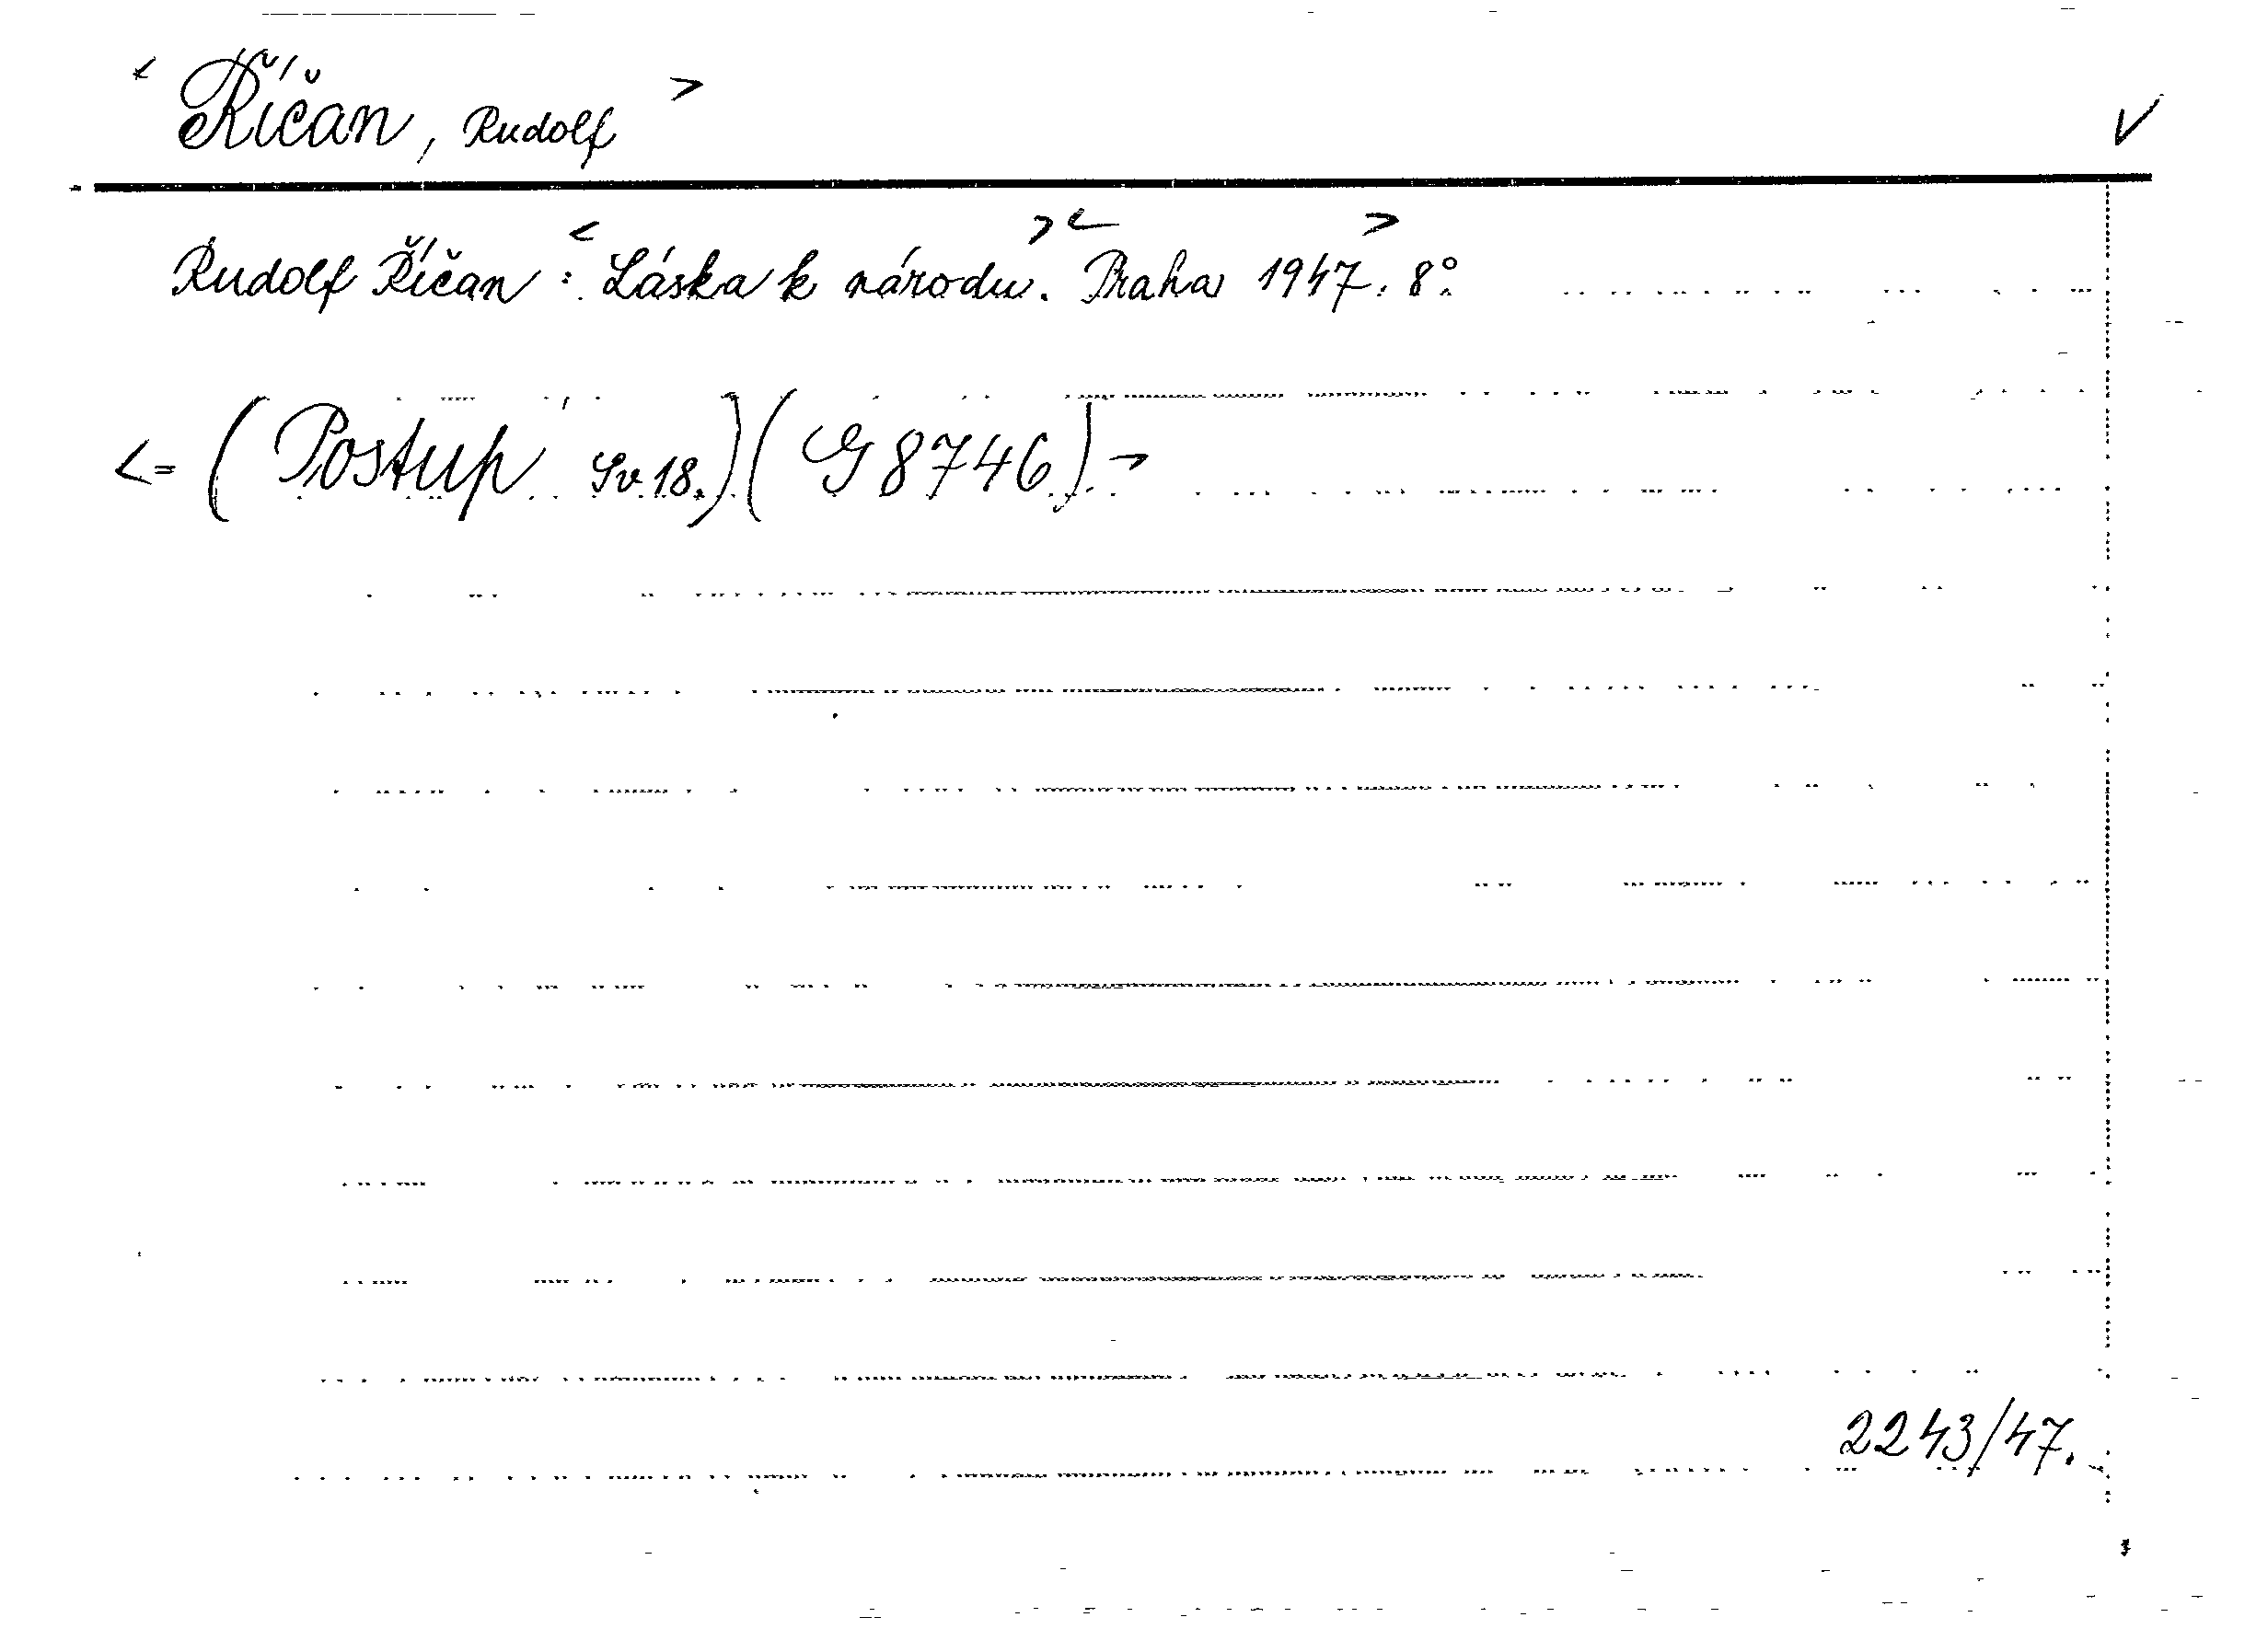 < Říčan, Rudolf > V
Rudolf Říčan : < Láska k národu. > < Praha 1947. > 8°.
<= (Postup Sv. 18.) (G 8746) >
2243/47.